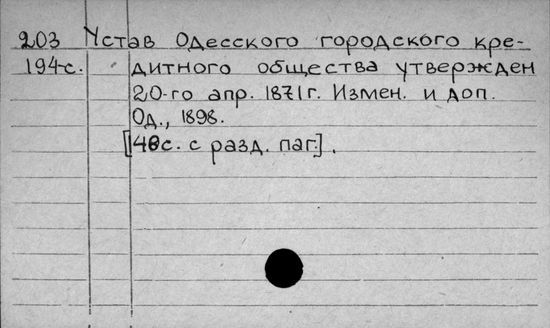 203 Устав Одесского городского кре-
194-с. дитного общества утвержден
20-го апр. 1871г. Измен. и доп.
Од., 1898.
[48с. с разд. паг.].